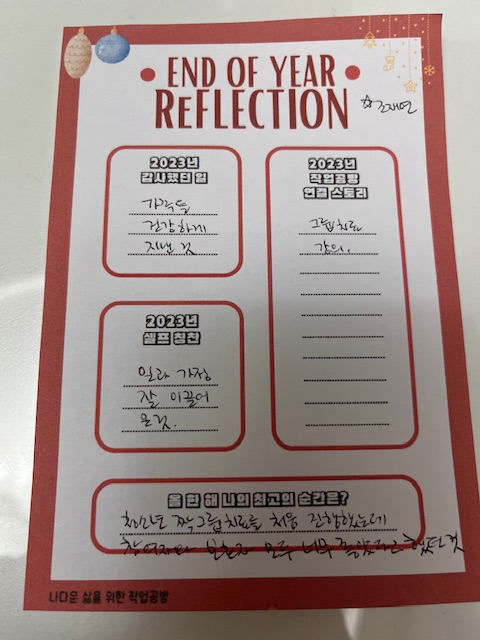 END OF YEAR
REFLECTION
2023년
감사했던 일
가족들
건강하게
지낸 것
2023년
작업공방
연결 스토리
그룹치료
강의.
2023년
셀프 칭찬
일과 가정
잘 이끌어
온것.
올 한 해 나의 최고의 순간은?
청소년 짝그룹치료를 처음 진행했는데
참여자와 보호자 모두 너무 좋았다고 했던 것
나다운 삶을 위한 작업공방